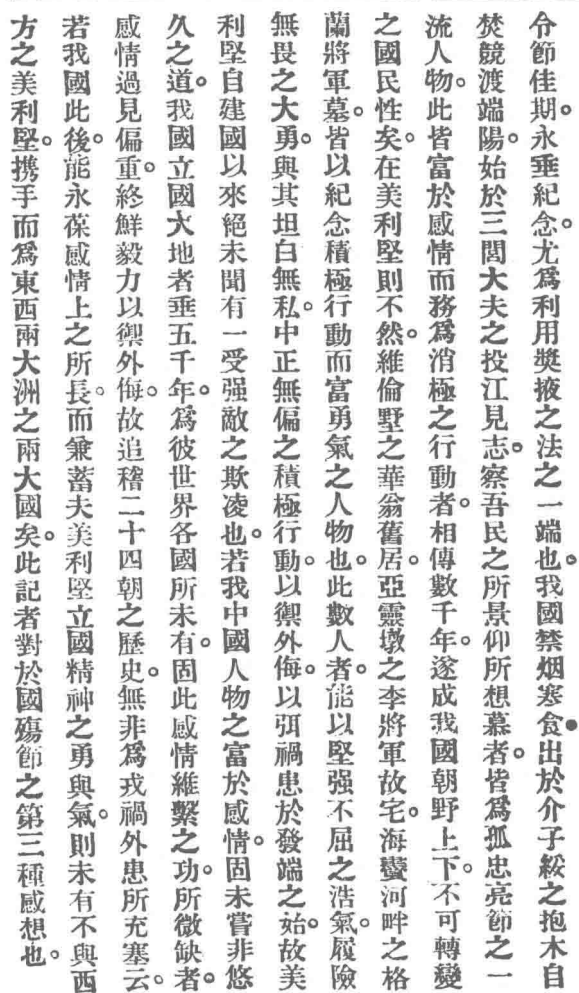 令節佳期。永垂紀念。尤爲利用奬掖之法之一端也。我國禁烟寒食●出於介子綏之抱木自
焚競渡端陽。始於三閭大夫之投江見志。察吾民之所景仰所想慕者。皆爲孤忠亮節之一
流人物。此皆富於感情而務爲消極之行動者。相傳數千年。遂成我國朝野上下。不可轉變
之國民性矣。在美利堅則不然。維倫墅之華翁舊居。亞靈墩之李將軍故宅。海蠻河畔之格
蘭將軍墓。皆以紀念積極行動而富勇氣之人物也。此數人者。能以堅强不屈之浩氣。履險
無畏之大勇。與其坦白無私。中正無偏之積極行動。以禦外侮。以弭禍患於發端之始。故美
利堅自建國以來絕未聞有一受强敵之欺凌也。若我中國人物之富於感情。固未嘗非悠
久之道。我國立國大地者垂五千年。爲彼世界各國所未有。固此感情維繫之功。所微缺者。
感情過見偏重。終鮮毅力以禦外侮。故追稽二十四朝之歷史。無非爲戎禍外患所充塞云。
若我國此後。能永葆感情上之所長。而兼蓄夫美利堅立國精神之勇與氣。則未有不與西
方之美利堅。携手而爲東西兩大洲之兩大國矣。此記者對於國殤節之第三種感想也。